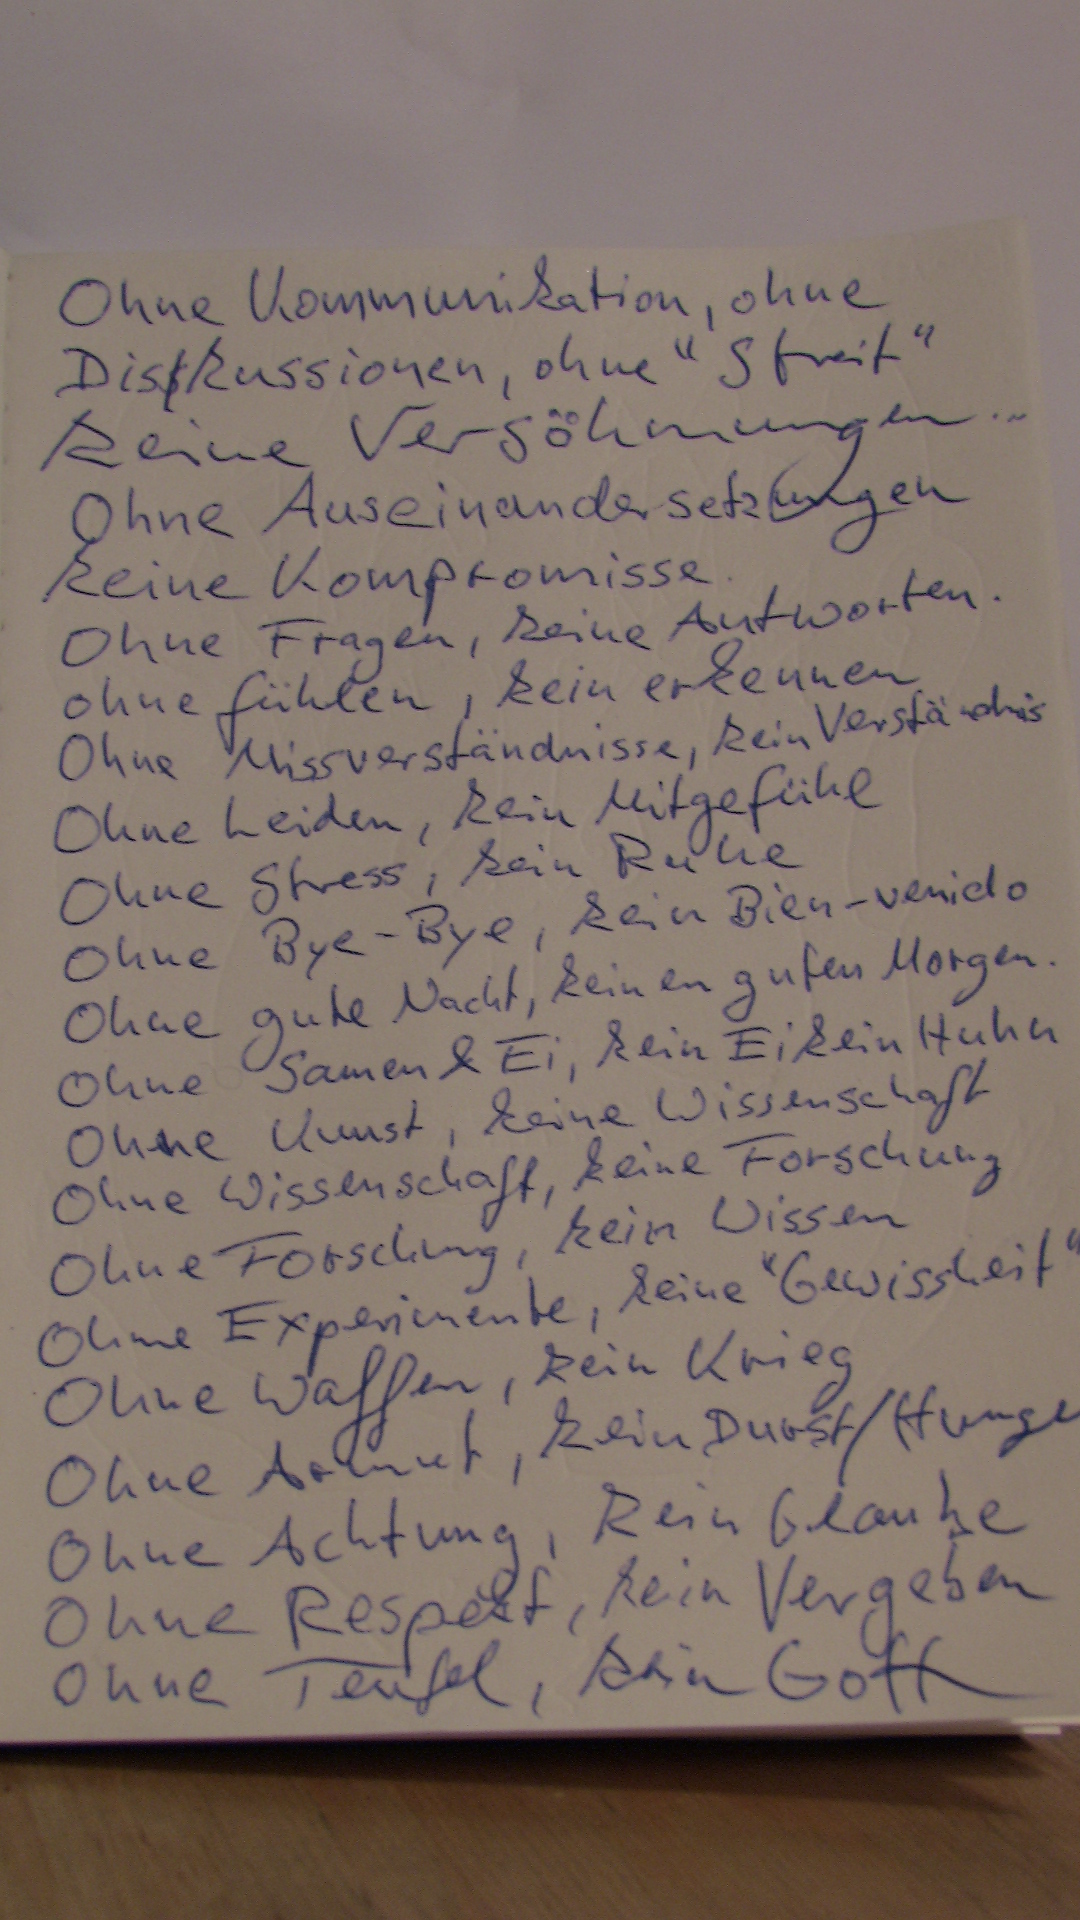 Ohne Kommunikation, ohne
Diskussionen, ohne "Streit"
keine Versöhnungen...
Ohne Auseinandersetzungen
keine Kompromisse.
Ohne Fragen, keine Antworten.
ohne fühlen, kein erkennen
Ohne Missverständnisse, kein Verständnis
Ohne Leiden, kein Mitgefühl
Ohne Stress, kein Ruhe
Ohne Bye-Bye, kein Bien-venido
Ohne gute Nacht, keinen guten Morgen.
Ohne Samen & Ei, kein Ei kein Huhn
Ohne Kunst, keine Wissenschaft
Ohne Wissenschaft, keine Forschung
Ohne Forschung, kein Wissen
Ohne Experimente, keine "Gewissheit"
Ohne Waffen, kein Krieg
Ohne Armut, kein Durst/Hunger
Ohne Achtung, kein Glaube
Ohne Respekt, kein Vergeben
Ohne Teufel, kein Gott